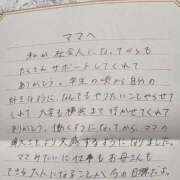 ママへ
私が社会人になってからも
たくさんサポートしてくれて
ありがとう。学生の頃から自分の
好きなように、なんでもやりたいことやらせて
くれて、大学も横浜まで行かせてくれて
ありがとう。働くようになってから、ママの
偉大さをより実感するようになりました。
ママみたいに仕事もお母さんも
できる大人になることが今の目標だよ。